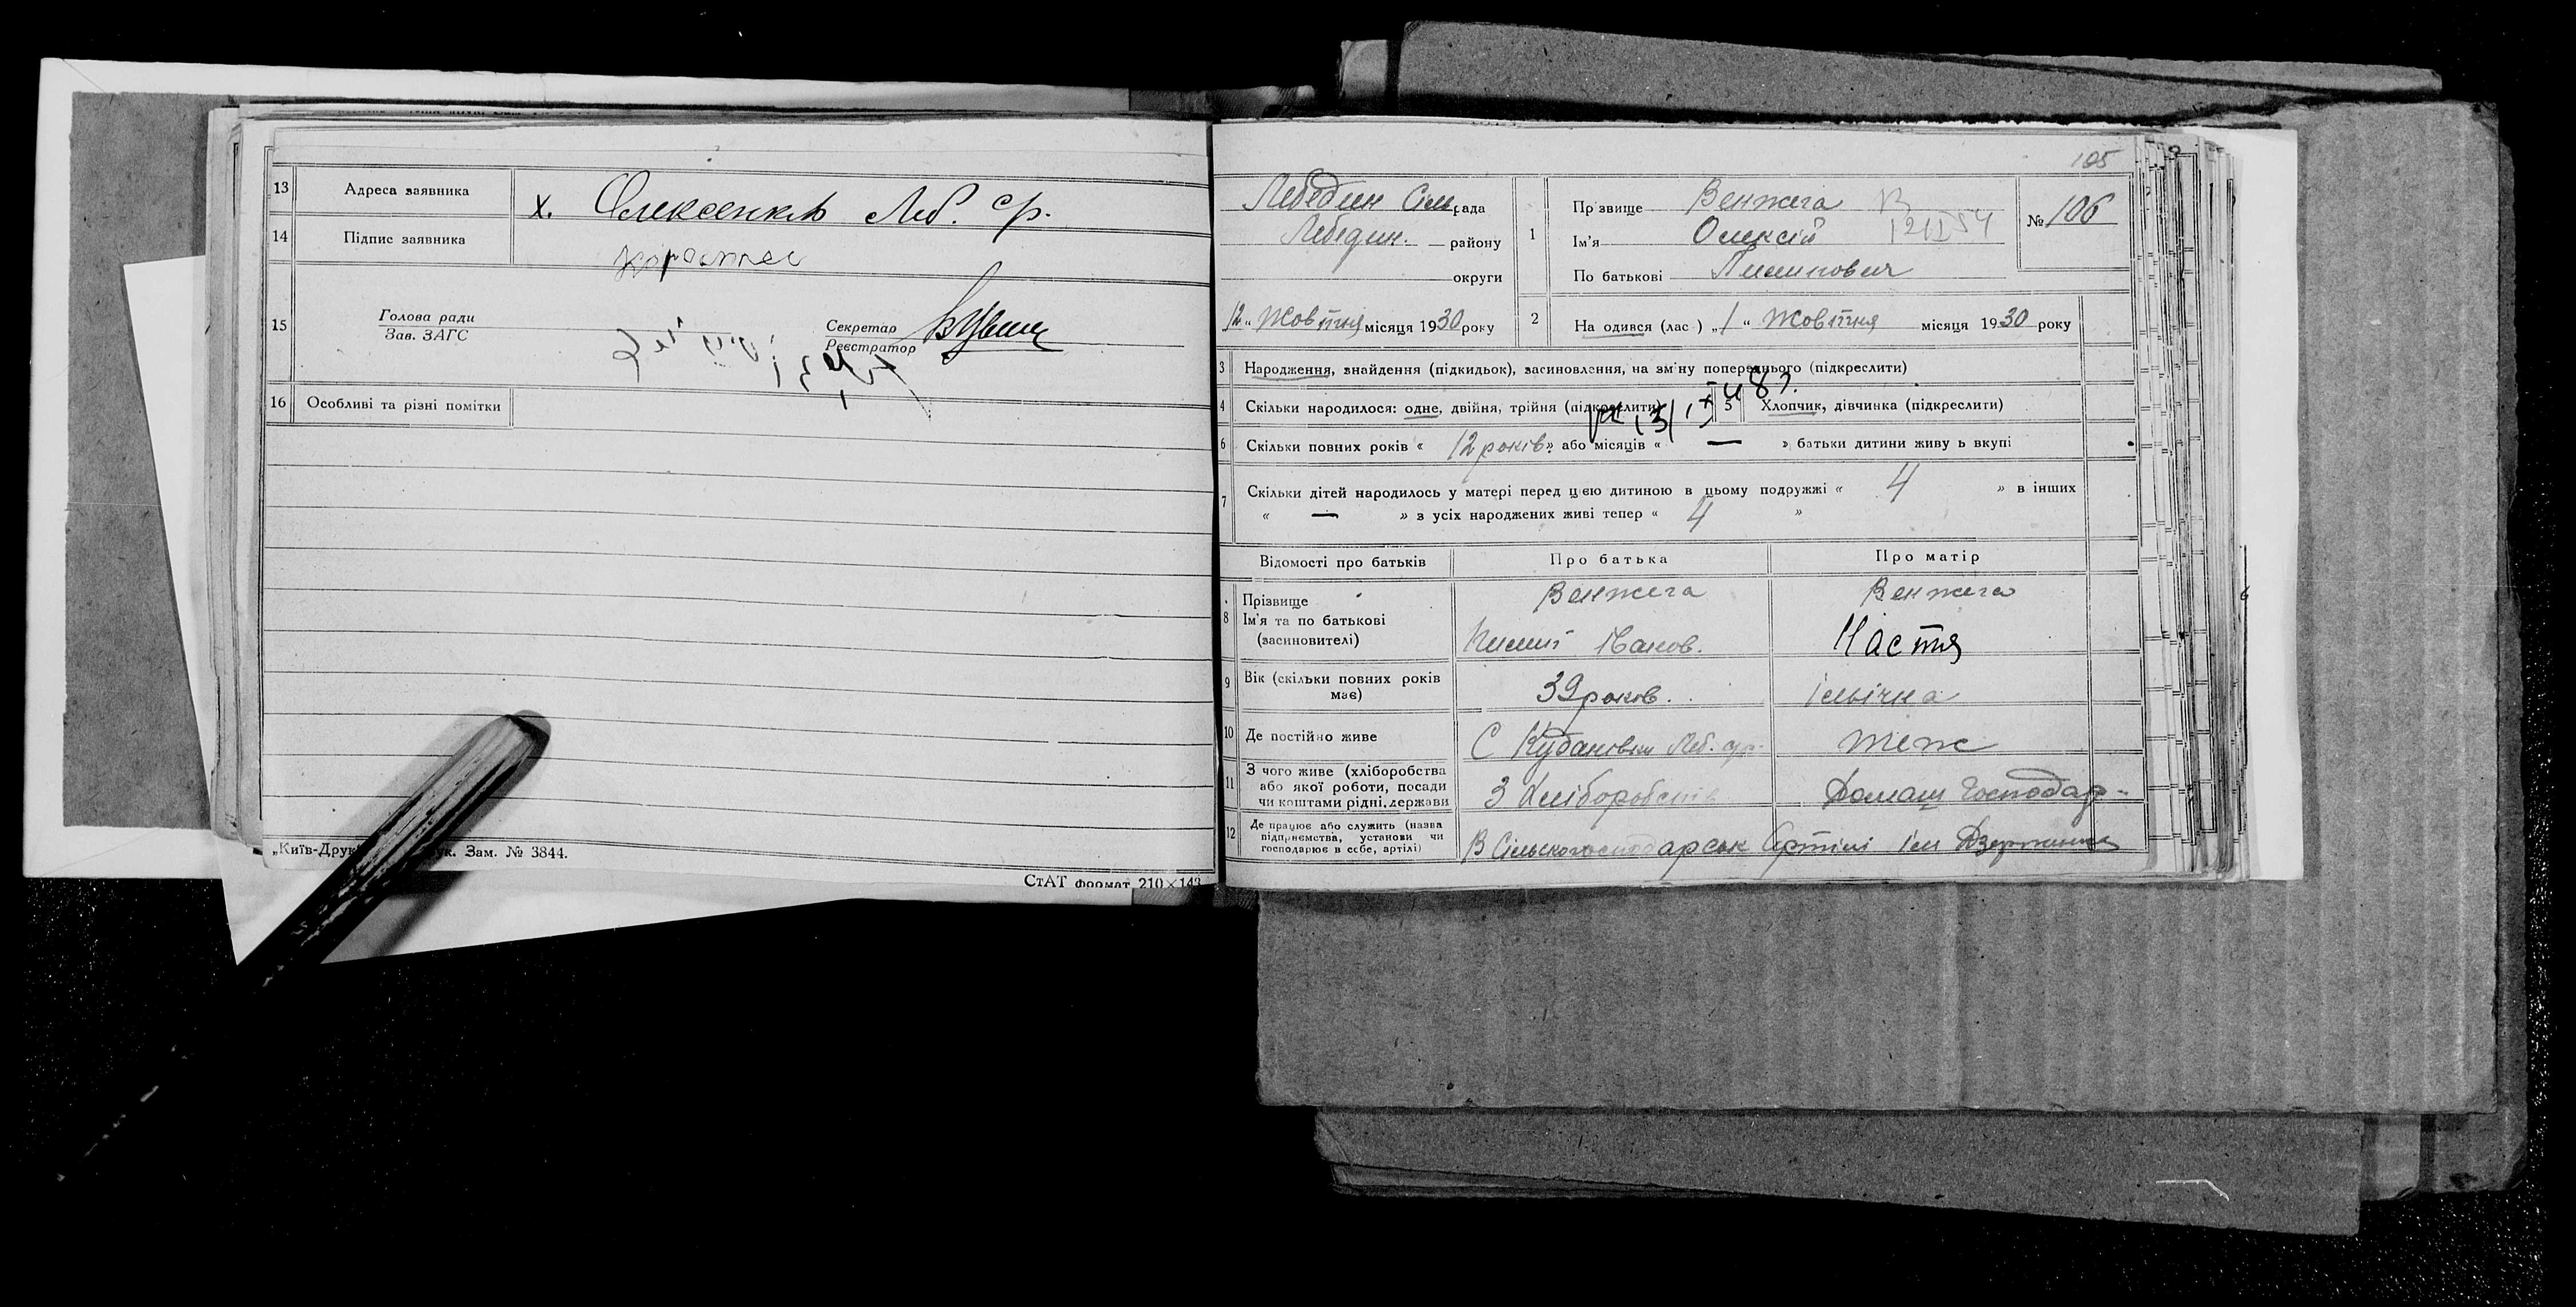 13 Адреса заявника х. Олексенків Леб. ср.
14 Підпис заявника
15 Голова ради
Зав. ЗАГС
Секретар
Реєстратор
16 Особливі та різні помітки
„Київ-Друк
ук. Зам. № 3844.
СтАТ формат 210×143
105
Лебедин Сільрада
Лебедин. району
округи
12 „ Жовтня місяця 1930 року
1 Прізвище Венжега
Ім'я Олексій
По батькові
№ 106
2 На одився (лас ) „ 1 “ Жовтня місяця 1930 року
3 Народження, знайдення (підкидьок), засиновлення, на зміну попереднього (підкреслити)
4 Скільки народилося: одне, двійня, трійня (підкреслити)
5 Хлопчик, дівчинка (підкреслити)
6 Скільки повних років « 12 років » або місяців « — » батьки дитини живу ь вкупі
7 Скільки дітей народилось у матері перед цією дитиною в цьому подружжі « 4 » в інших
« — » з усіх народжених живі тепер « 4 »
Відомості про батьків Про батька Про матір
8 Прізвище Венжега Венжега
Ім'я та по батькові
(засиновителі)
Настя
9 Вік (скільки повних років
має)
39 років. Ільічна
10 Де постійно живе С Леб. ср. теж
11 З чого живе (хліборобства
або якої роботи, посади
чи коштами рідні, держави
З Хліборобства Домаш Господар-
12 Де працює або служить (назва
підприємства, установи чи
господарює в себе, артілі)
В Сільськогосподарськ Артілі ім Дзержинськ